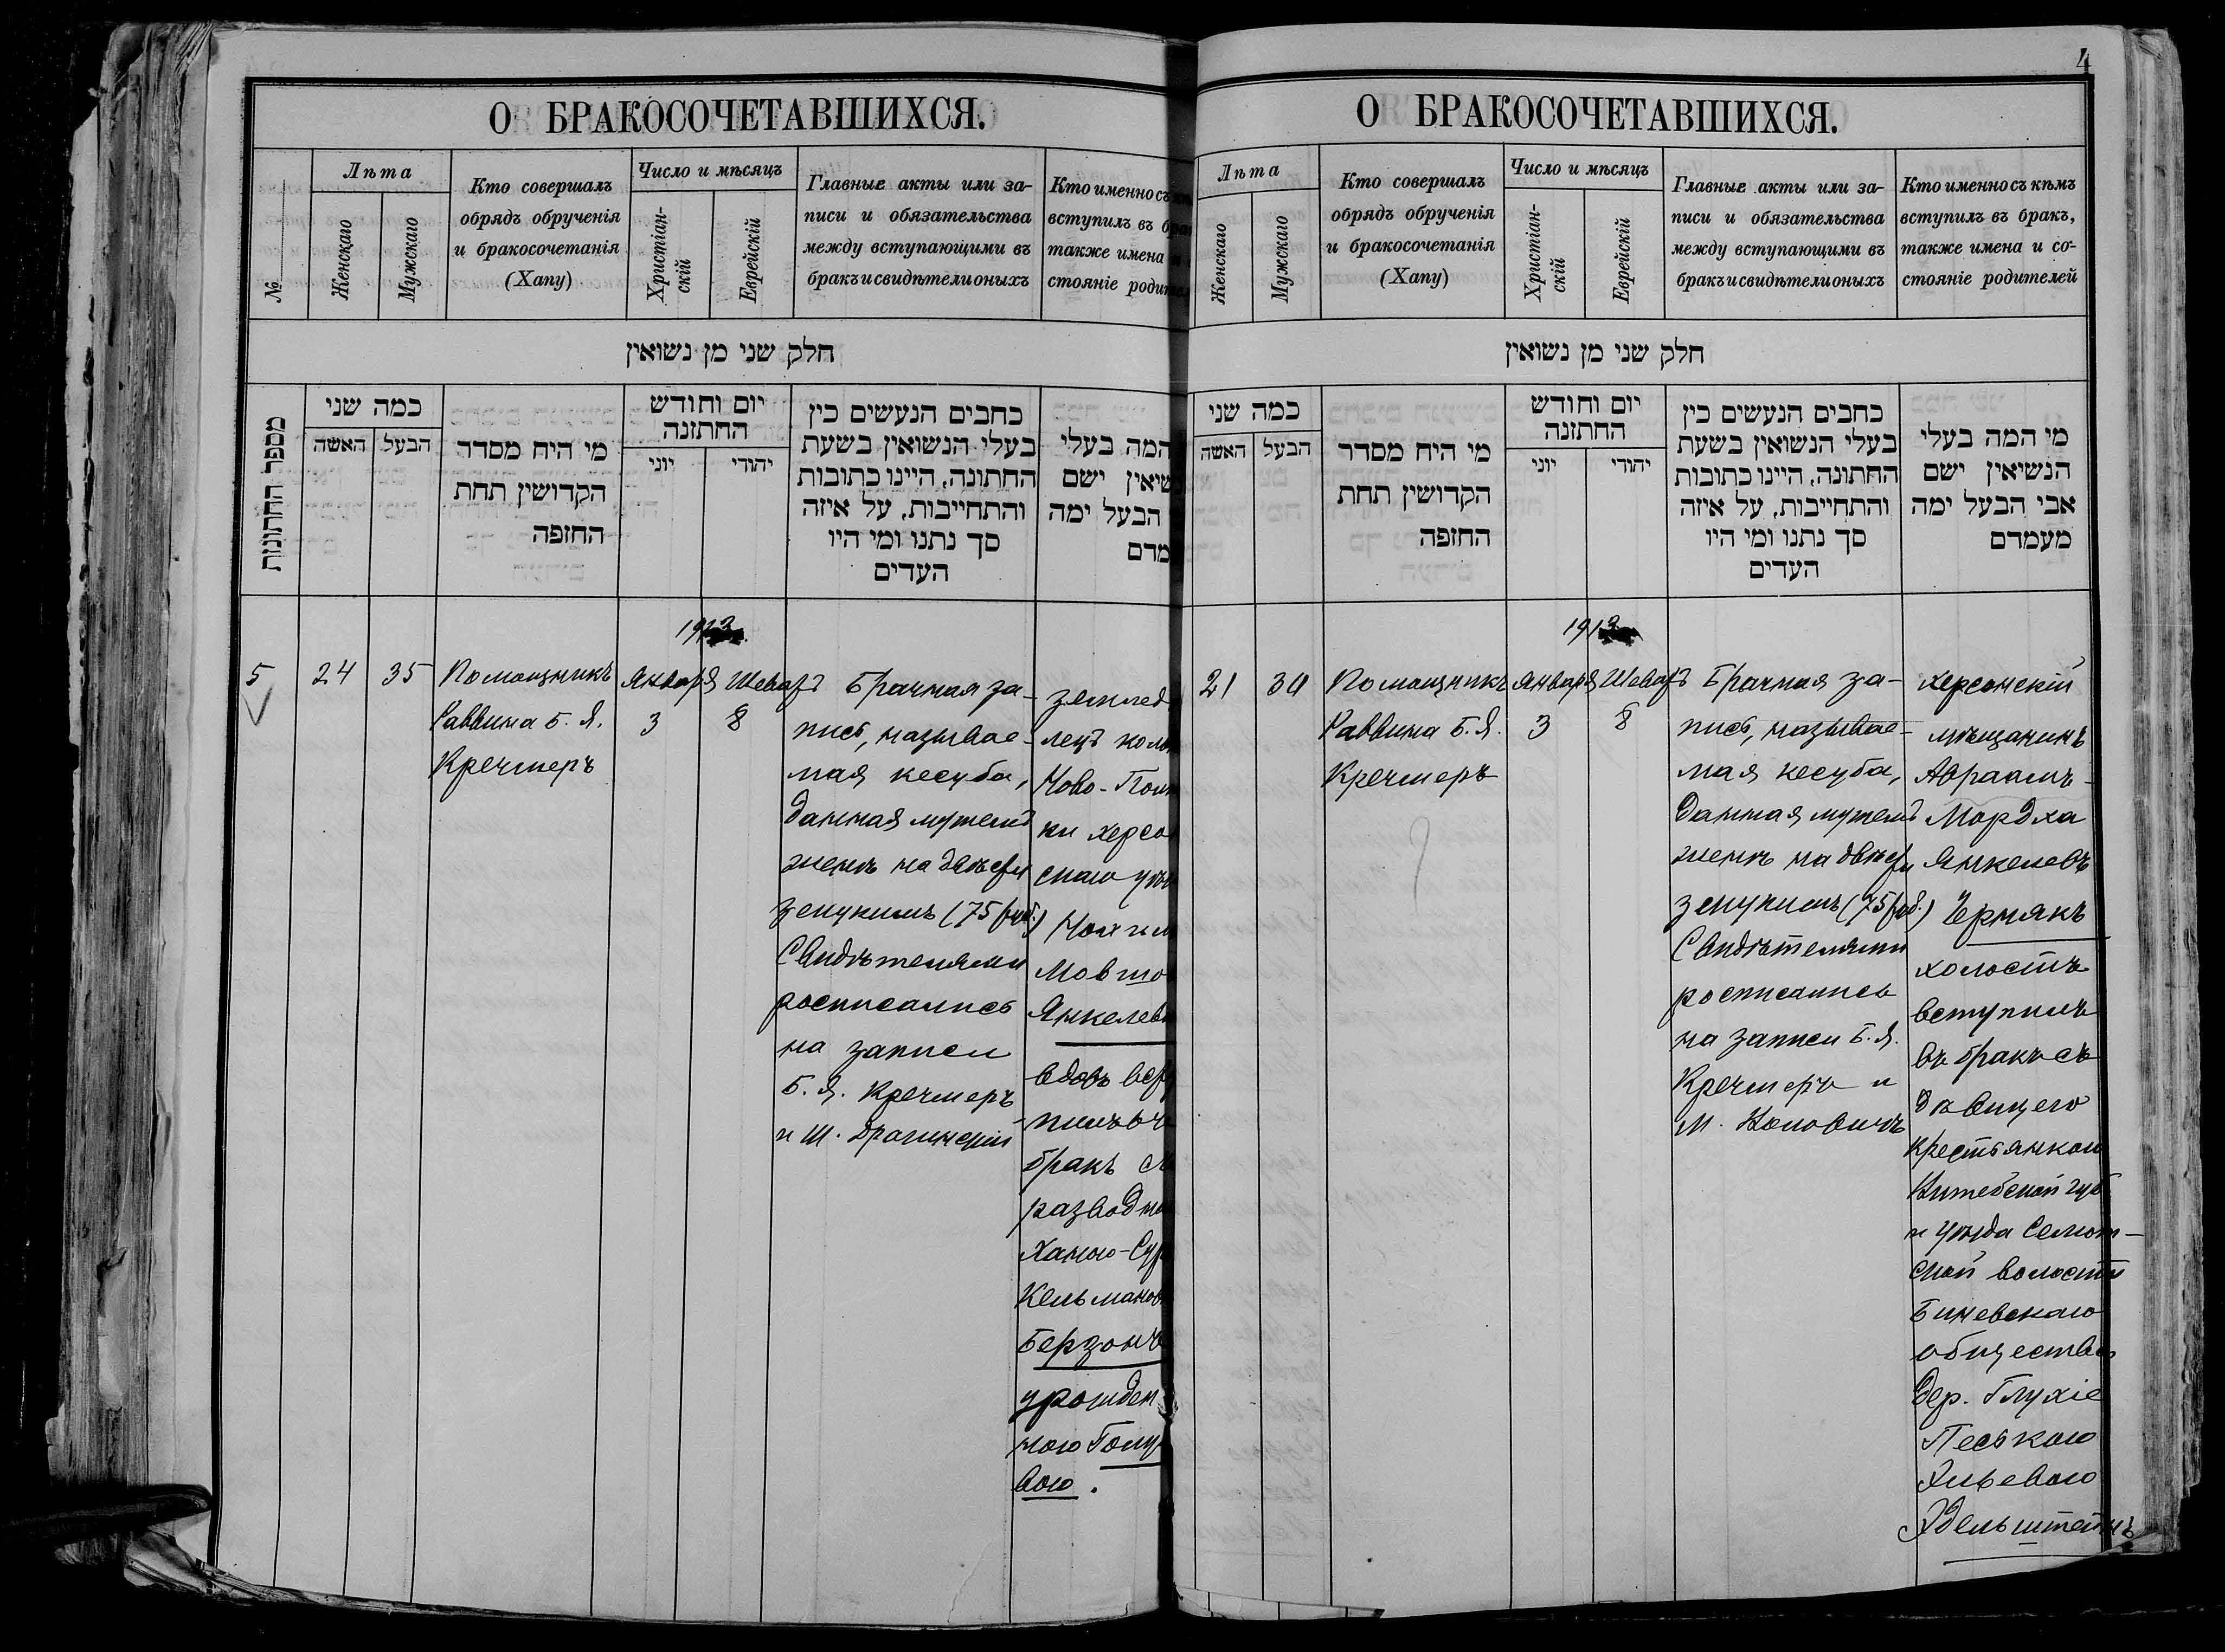 4
О БРАКОСОЧЕТАВШИХСЯ.
№
Лѣта
Женскаго
Мужскаго
Кто совершалъ
обрядъ обрученія
и бракосочетанія
(Хапу)
Число и мѣсяцъ
Христіан-
скій
Еврейскій
Главные акты или за-
писи и обязательства
между вступающими въ
бракъ и свидѣтели оныхъ
Кто именно съ
вступилъ въ
также имена
стояніе
חלק שני מן נשואין
מספר החתונות
כמה שני
האשה
הבעל
מי היח מסדר
הקדושין תחת
החזפה
יום וחודש
החתזנה
יוני
יהודי
כחבים הנעשים כין
בעלי הנשואין בשעת
החתונה, היינו כתובות
והתחייבות, על איזה
סך נתנו ומי היו
העדים
המה בעלי
ישם
הבעל ימה
1913
5
24
35
Помощникъ
Раввина Б. Я.
Кречмеръ
Января
3
Шеватъ
8
Брачная за-
пись, называе-
мая кесуба,
данная мужемъ
женѣ на двѣсти
зекукимъ (75 руб.)
Свидѣтелями
росписались
на записи
Б. Я. Кречмеръ
и Ш.
землед
лецъ
Ново-
ки
Мовшо
вдовъ
бракъ
Ханою-
Берзонъ
урожден
ною
вою.
О БРАКОСОЧЕТАВШИХСЯ.
Лѣта
Женскаго
Мужскаго
Кто совершалъ
обрядъ обрученія
и бракосочетанія
(Хапу)
Число и мѣсяцъ
Христіан-
скій
Еврейскій
Главные акты или за-
писи и обязательства
между вступающими въ
бракъ и свидѣтели оныхъ
Кто именно съ кѣмъ
вступилъ въ бракъ,
также имена и со-
стояніе родителей
חלק שני מן נשואין
כמה שני
האשה
הבעל
מי היח מסדר
הקדושין תחת
החזפה
יום וחודש
החתזנה
יוני
יהודי
כחבים הנעשים כין
בעלי הנשואין בשעת
החתונה, היינו כתובות
והתחייבות, על איזה
סך נתנו ומי היו
העדים
מי המה בעלי
הנשיאין ישם
אבי הבעל ימה
מעמדם
1913
21
30
Помощникъ
Раввина Б. Я.
Кречмеръ
Января
3
Шеватъ
8
Брачная за-
пись, называе-
мая кесуба,
данная мужемъ
женѣ на двѣсти
зекукимъ (75 руб.)
Свидѣтелями
росписались
на записи Б. Я.
Кречмеръ и
М.
Херсонскій
мѣщанинъ
Авраамъ-
Мордха
Янкелевъ
Чернякъ
холостъ
вступилъ
въ бракъ съ
дѣвицею
крестьянкою
Витебской губ.
и уѣзда
ской волости
общества
дер. Глухіе
Пеською
Эдельштейнъ